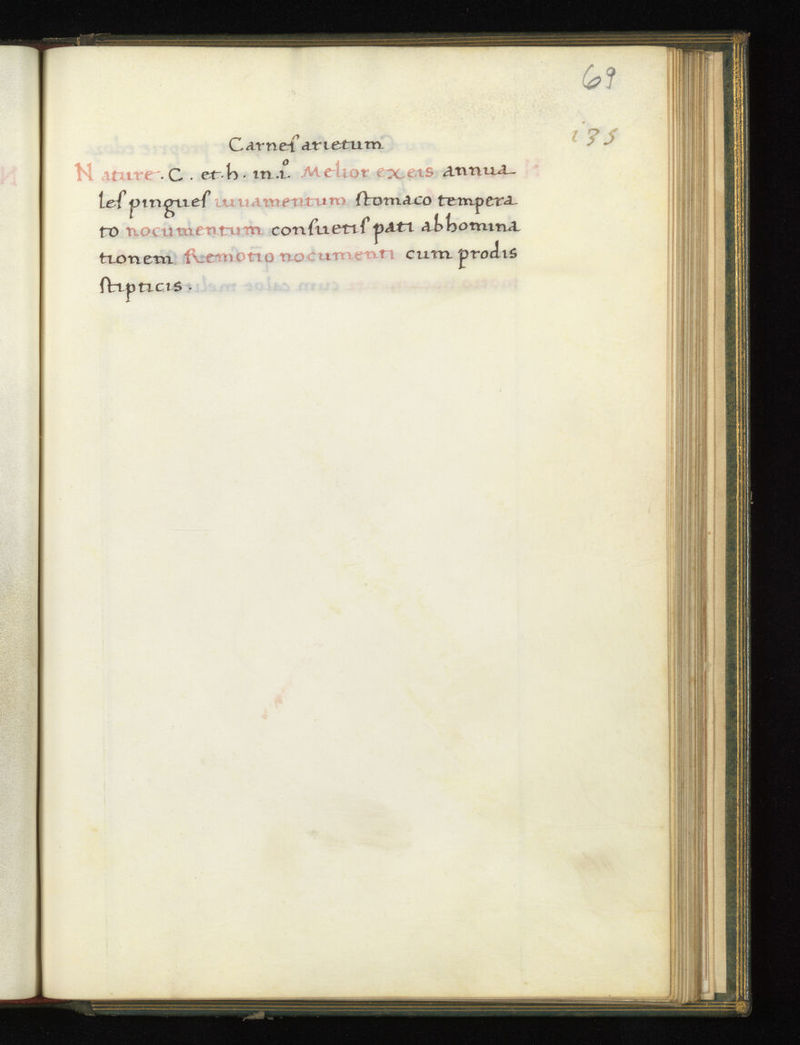 69
135
Carneſ arietum
Nature . C . et . h . in .i.º Melior ex eis annua-
leſ pingueſ iuuamentum ſtomaco tempera-
to nocumentum conſuetiſ pati abhomina
tionem Remotio nocumenti cum prodis
ſtipticis .